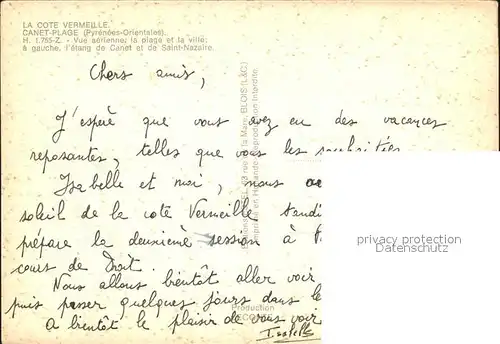 LA COTE VERMEILLE.
CANET-PLAGE (Pyrénées-Orientales).
H. 1.755-Z. - Vue aérienne: la plage et la ville;
à gauche, l'étang de Canet et de Saint-Nazaire.
Chers amis,
J'espère que vous avez eu des vacances
reposantes, telles que vous les souhaitiez
Isabelle et moi, nous
soleil de la côte Vermeille tandi
prépare la deuxième session à
cours de Droit.
Nous allons bientôt aller voir
puis passer quelques jours dans le
A bientôt le plaisir de vous voir
Isabelle
privacy protection
Datenschutz